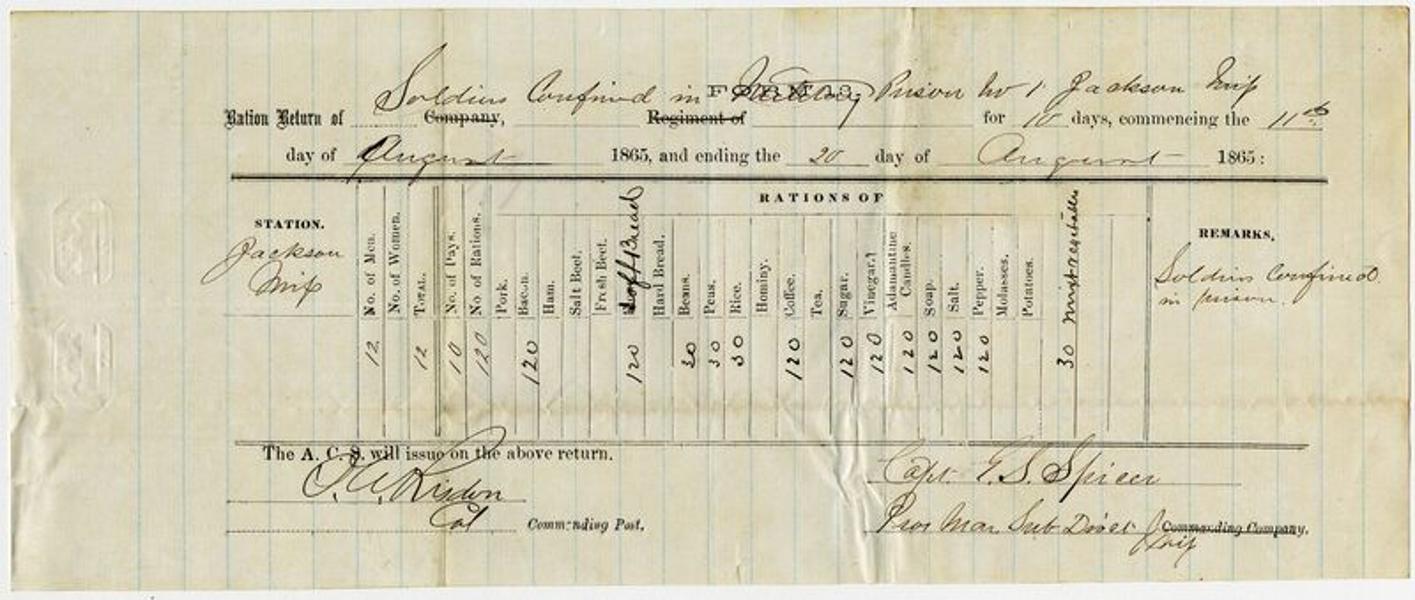 FORM 13.
Soldiers Confined in Military Prison No 1 Jackson Miss
Ration Return of Company, Regiment of for 10 days, commencing the 11th
day of August 1865, and ending the 20 day of August 1865:
RATIONS OF
STATION. No. of Men. No. of Women. TOTAL. No. of Days. No. of Rations. Pork. Bacon. Ham. Salt Beef. Fresh Beef. Soft Bread Hard Bread. Beans. Peas. Rice. Hominy. Coffee. Tea. Sugar. Vinegar. Adamantine Candles. Soap. Salt. Pepper. Molasses. Potatoes. Mixt vegetables REMARKS.
Jackson
Miss
12 12 10 120 120 120 30 30 30 120 120 120 120 120 120 120 30
Soldiers Confined
in prison.
The A. C. S. will issue on the above return.
Risdon
Col Commanding Post.
Capt. Spicer
Pro Mar Sub Dist Commanding Company.
Miss